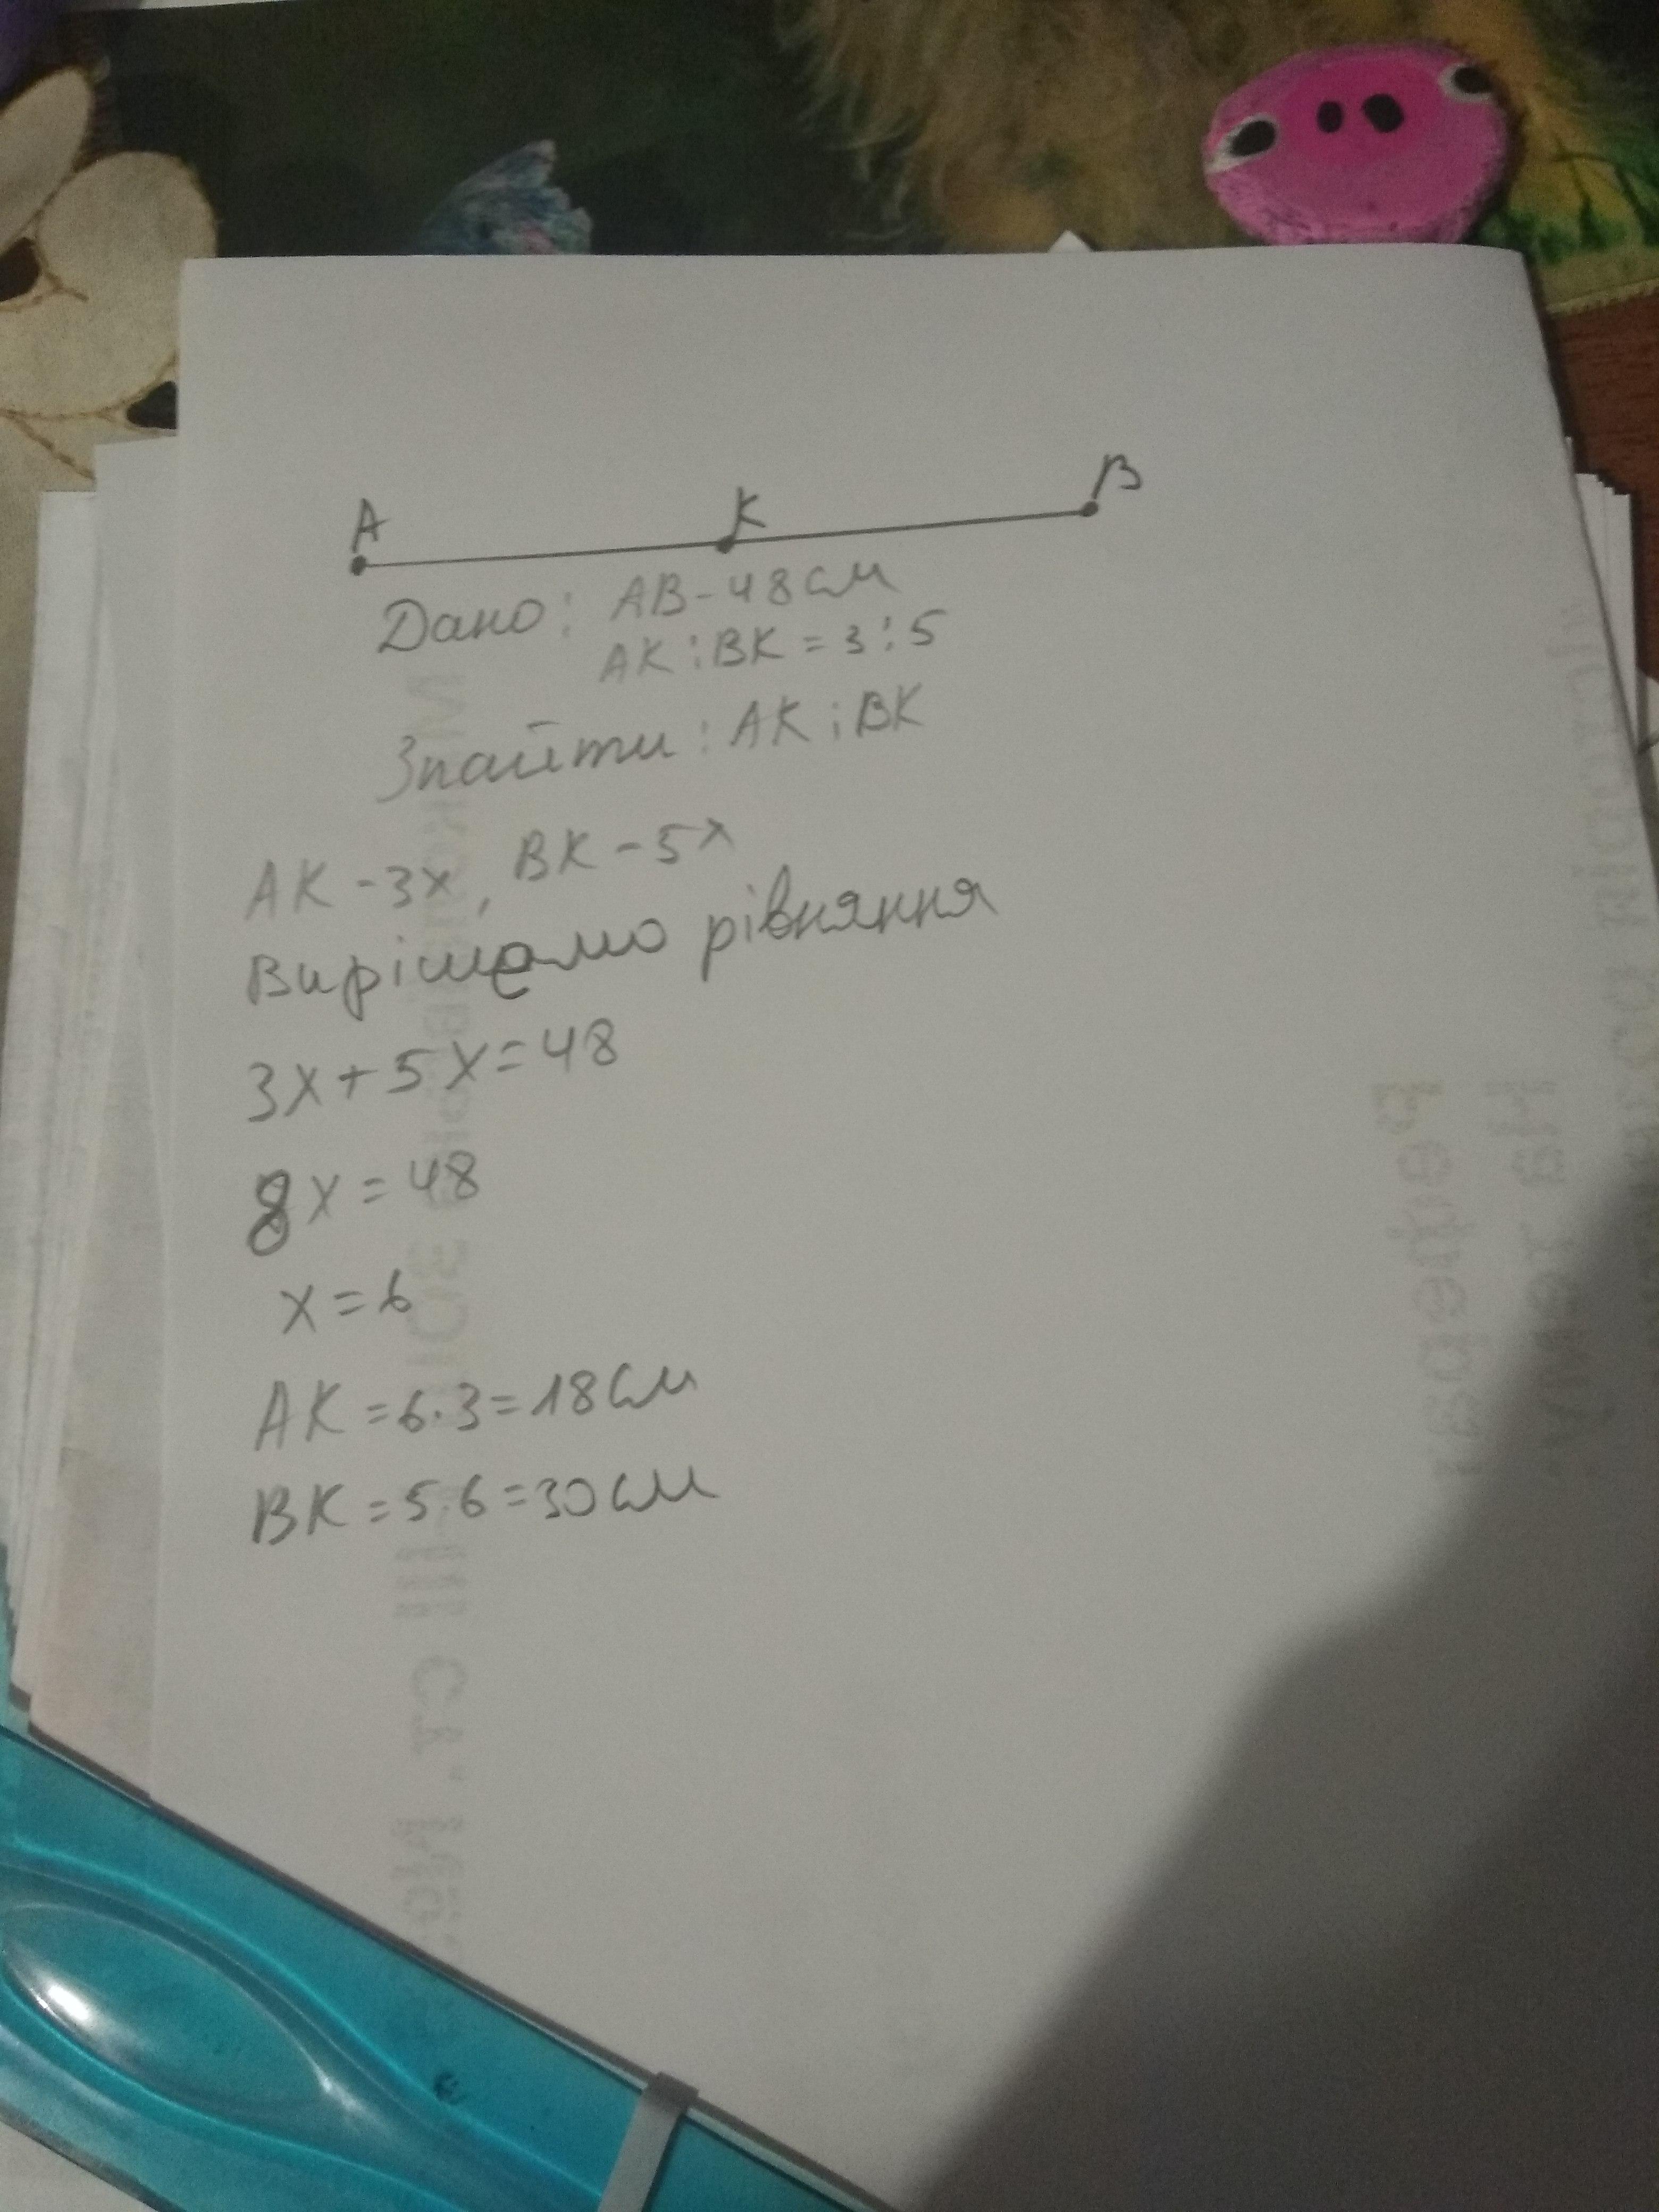 A K B
Дано: AB-48см
AK:BK=3:5
Знайти: AK і BK
AK-3x, BK-5x
Вирішемо рівняння
3x+5x=48
8x=48
x=6
AK=6·3=18см
BK=5·6=30см